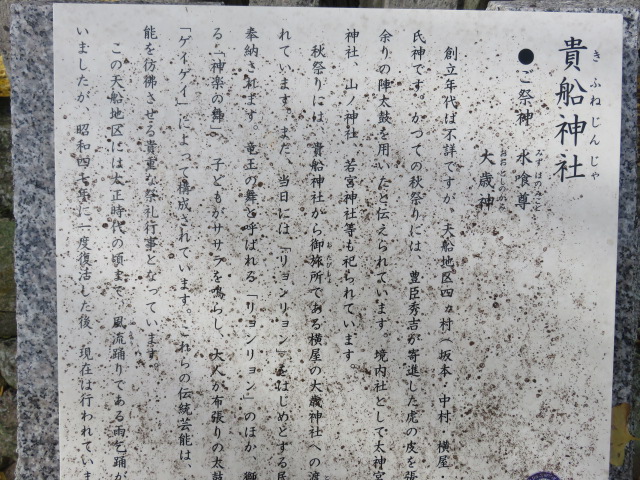 貴船神社
きふねじんじゃ
●ご祭神 水食尊
みずはのみこと
大歳神
おおとしのかみ
創立年代は不詳ですが、天船地区四ヵ村(坂本・中村・横屋・
氏神です。かつての秋祭りには、豊臣秀吉が寄進した虎の皮を張
余りの陣太鼓を用いたと伝えられています。境内社として太神宮
神社、山ノ神社、若宮神社等も祀られています。
秋祭りには、貴船神社から御旅所である横屋の大歳神社への渡
れています。また、当日には「リョンリョン」をはじめとする民
奉納されます。竜王の舞と呼ばれる「リョンリョン」のほか、獅
る「神楽の舞」、子どもがササラを鳴らし、大人が布張りの太鼓
「ゲイゲイ」によって構成されています。これらの伝統芸能は、
能を彷彿させる貴重な祭礼行事となっています。
この天船地区には大正時代の頃まで、風流踊りである雨乞踊が
いましたが、昭和四七年に一度復活した後、現在は行われていま